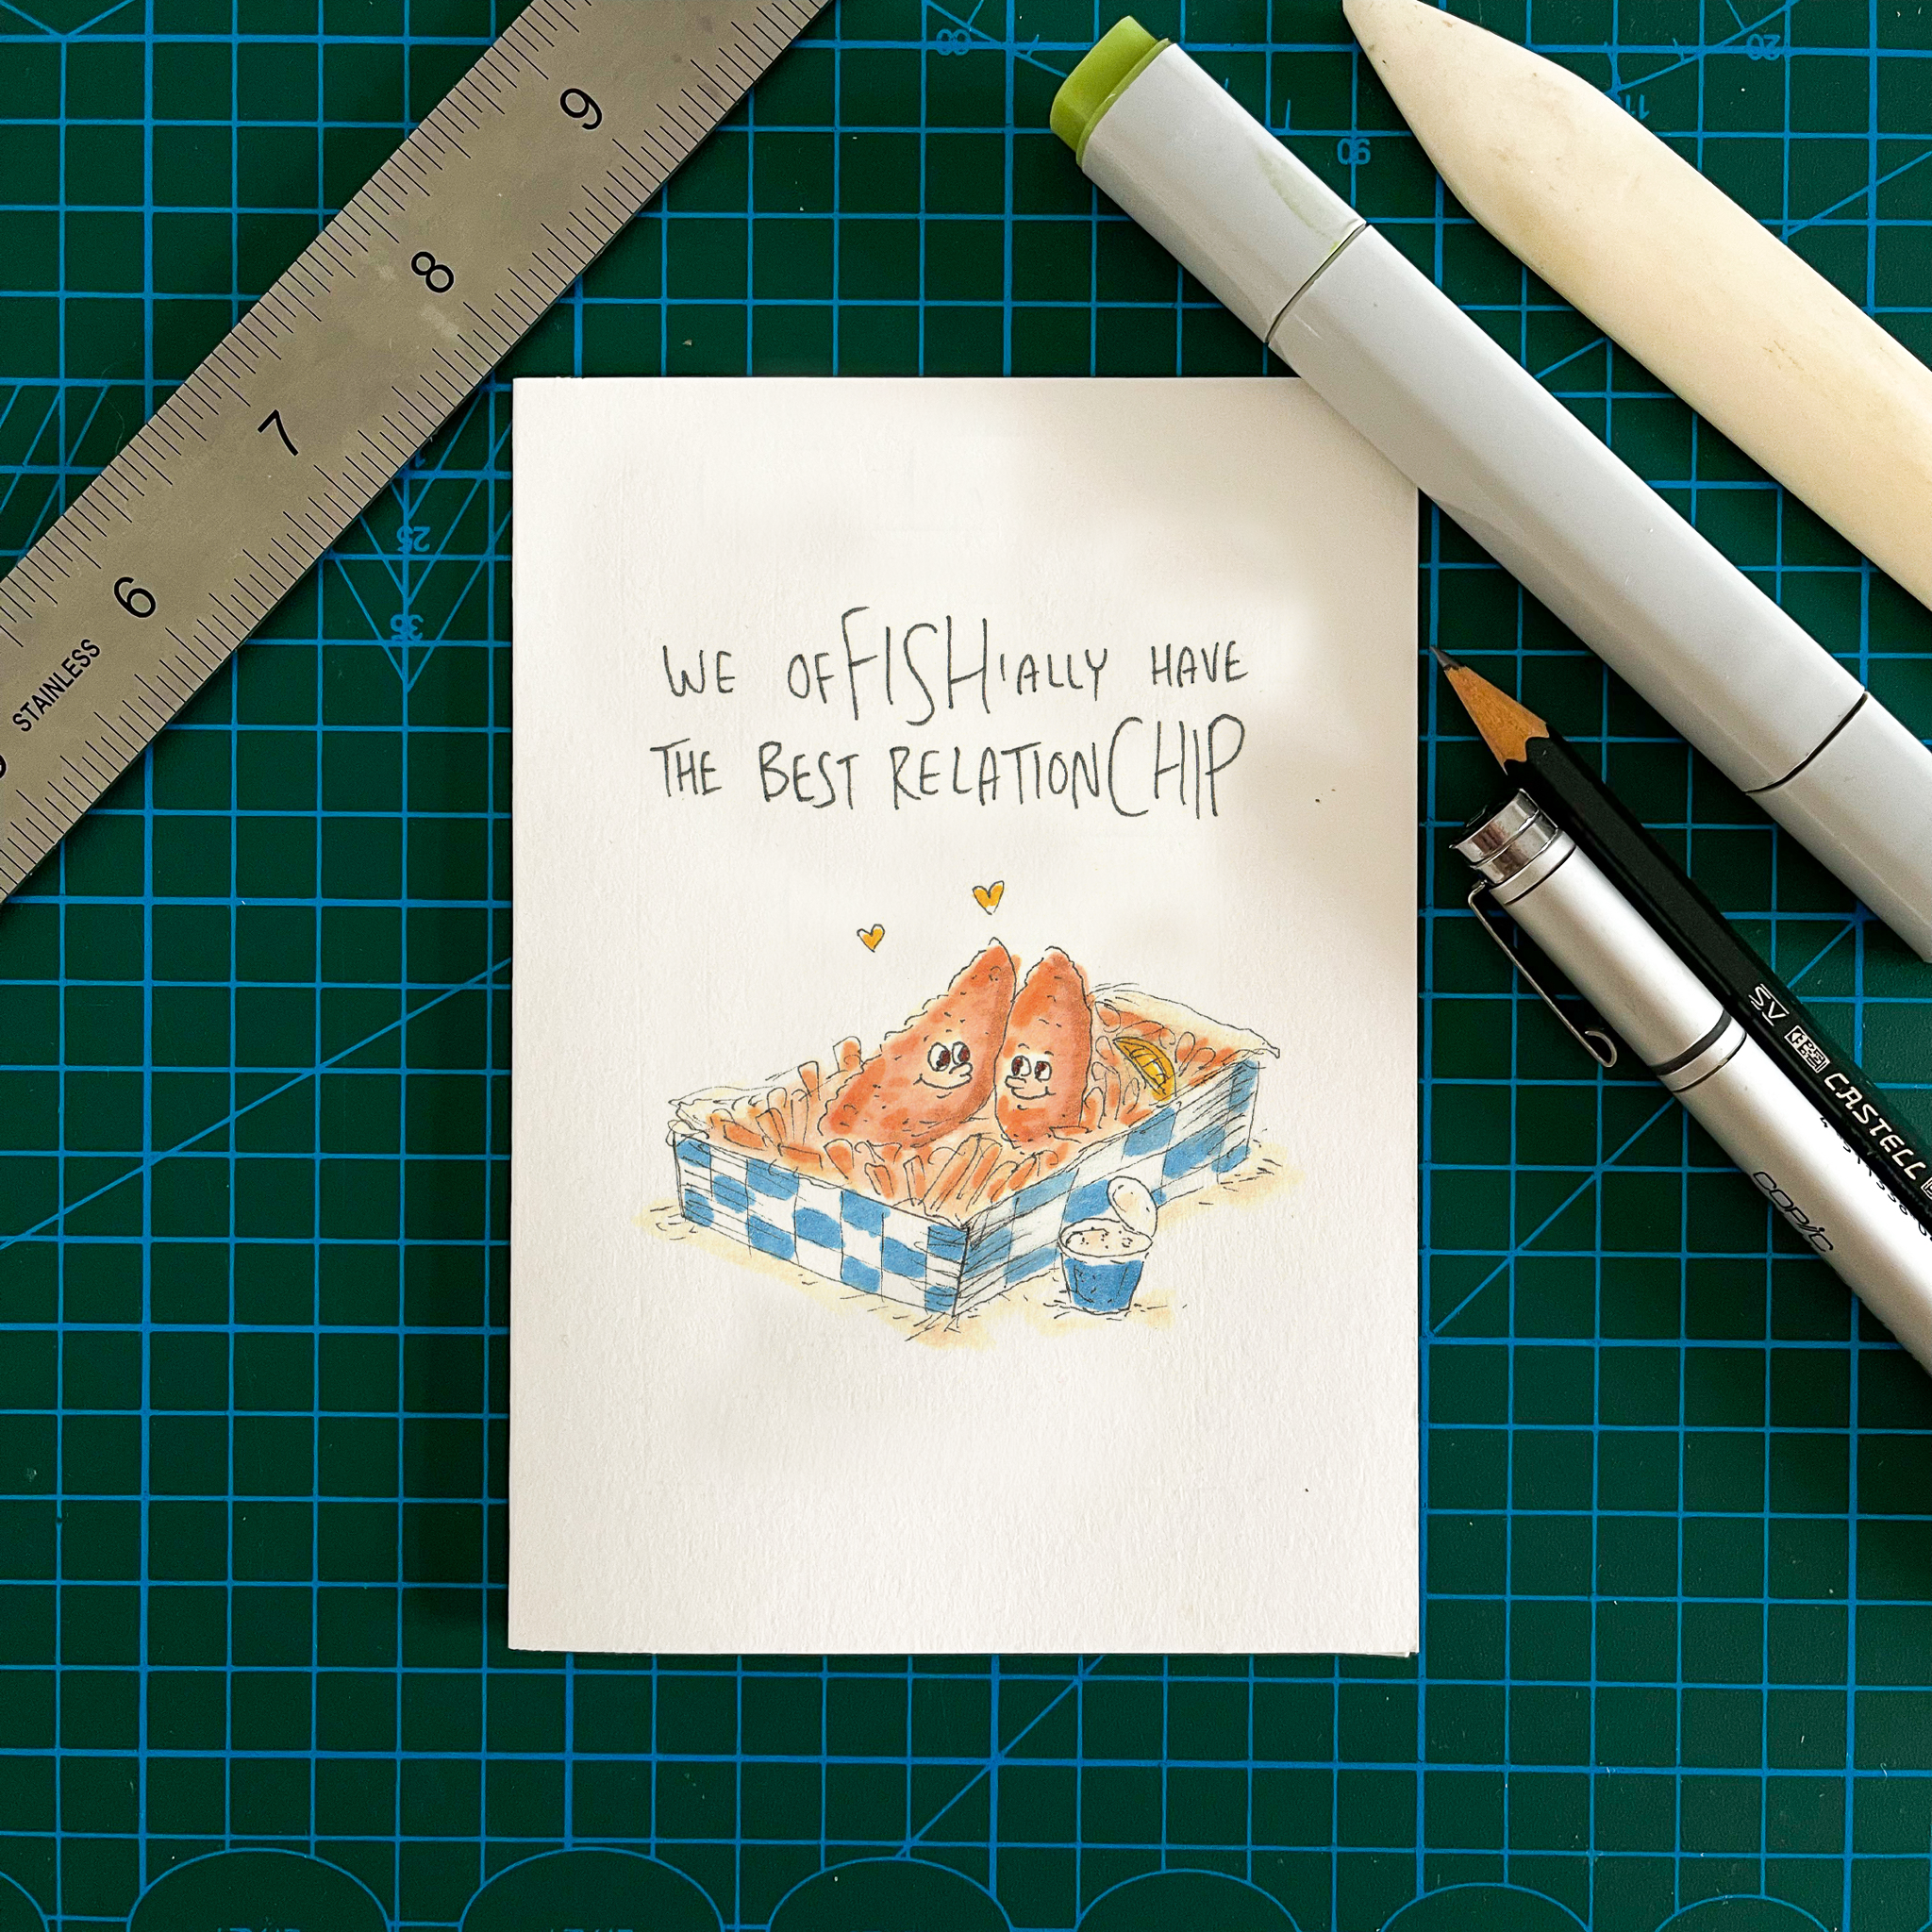 9
8
7
6
STAINLESS
60
90
110
20
25
35
WE OFFISH'IALLY HAVE
THE BEST RELATIONCHIP
SV CASTELL
COPIC